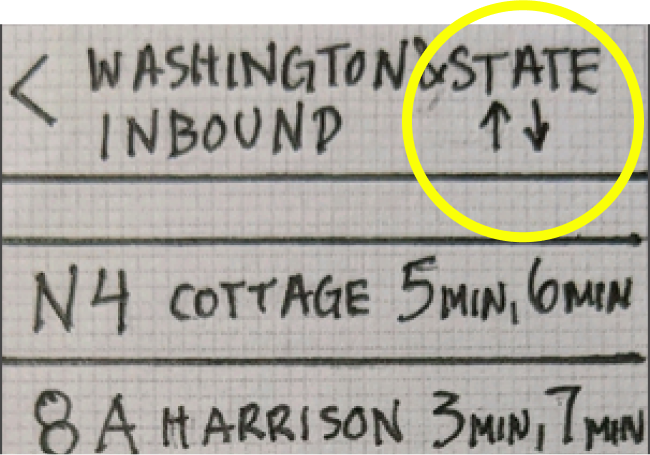 < WASHINGTON & STATE
INBOUND ↑↓
N4 COTTAGE 5MIN, 6MIN
8A HARRISON 3MIN, 7MIN